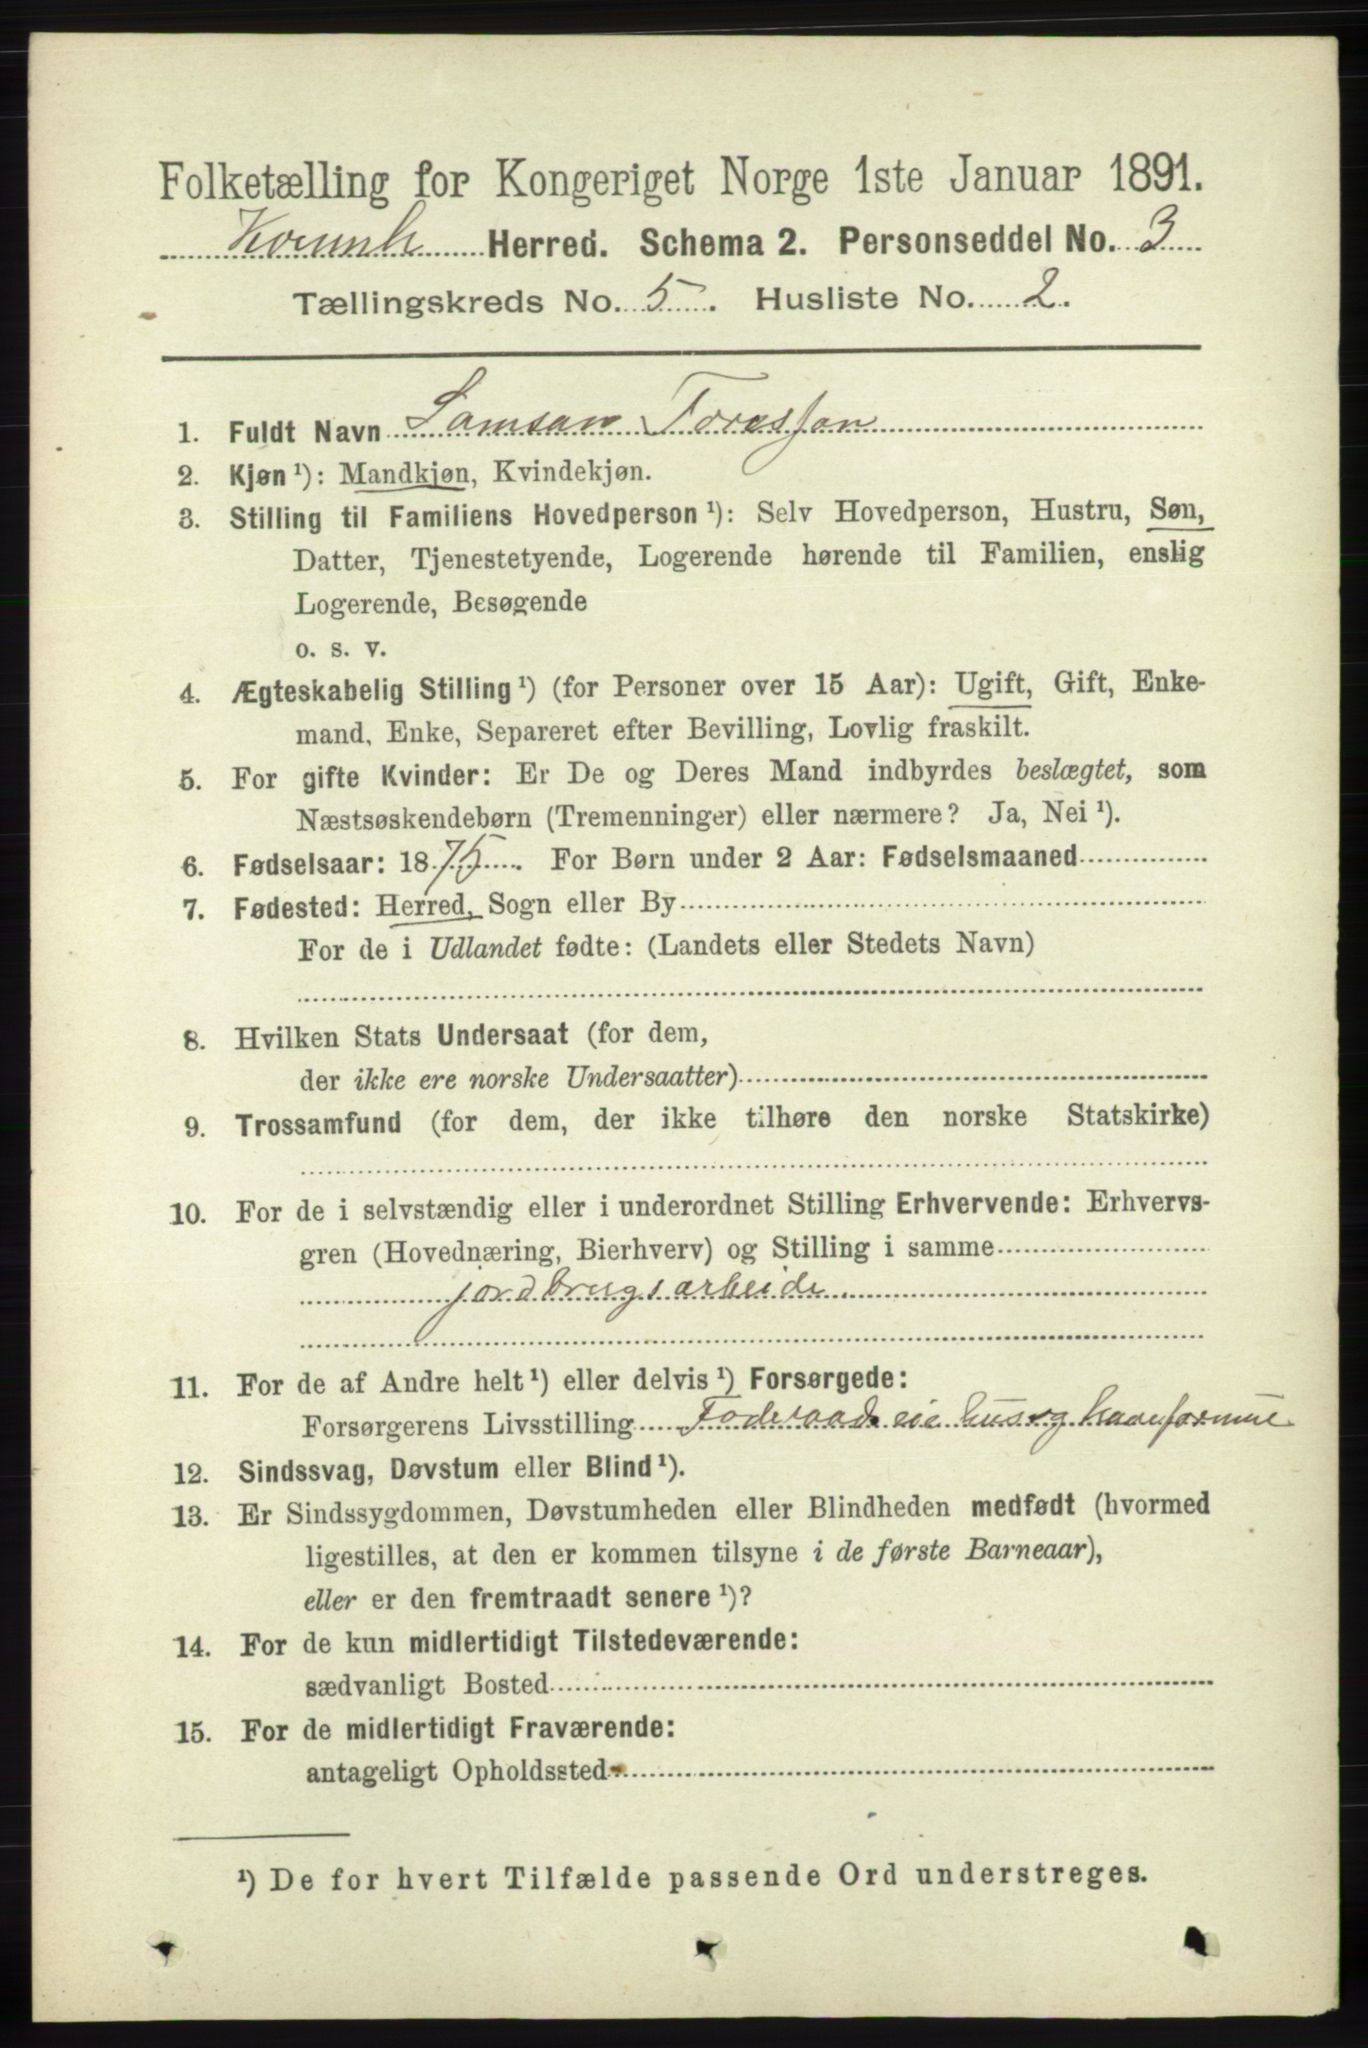 Folketælling for Kongeriget Norge 1ste Januar 1891.
Herred. Schema 2. Personseddel No. 3
Tællingskreds No. 5. Husliste No. 2.
1. Fuldt Navn Samson Toresson
2. Kjøn ¹): Mandkjøn, Kvindekjøn.
3. Stilling til Familiens Hovedperson ¹): Selv Hovedperson, Hustru, Søn,
Datter, Tjenestetyende, Logerende hørende til Familien, enslig
Logerende, Besøgende
o. s. v.
4. Ægteskabelig Stilling ¹) (for Personer over 15 Aar): Ugift, Gift, Enke-
mand, Enke, Separeret efter Bevilling, Lovlig fraskilt.
5. For gifte Kvinder: Er De og Deres Mand indbyrdes beslægtet, som
Næstsøskendebørn (Tremenninger) eller nærmere? Ja, Nei ¹).
6. Fødselsaar: 1875. For Børn under 2 Aar: Fødselsmaaned
7. Fødested: Herred, Sogn eller By
For de i Udlandet fødte: (Landets eller Stedets Navn)
8. Hvilken Stats Undersaat (for dem,
der ikke ere norske Undersaatter)
9. Trossamfund (for dem, der ikke tilhøre den norske Statskirke)
10. For de i selvstændig eller i underordnet Stilling Erhvervende: Erhvervs-
gren (Hovednæring, Bierhverv) og Stilling i samme
jordbrugsarbeide.
11. For de af Andre helt ¹) eller delvis ¹) Forsørgede:
Forsørgerens Livsstilling Foderaad eie hus og
12. Sindssvag, Døvstum eller Blind ¹).
13. Er Sindssygdommen, Døvstumheden eller Blindheden medfødt (hvormed
ligestilles, at den er kommen tilsyne i de første Barneaar),
eller er den fremtraadt senere ¹)?
14. For de kun midlertidigt Tilstedeværende:
sædvanligt Bosted
15. For de midlertidigt Fraværende:
antageligt Opholdssted
¹) De for hvert Tilfælde passende Ord understreges.